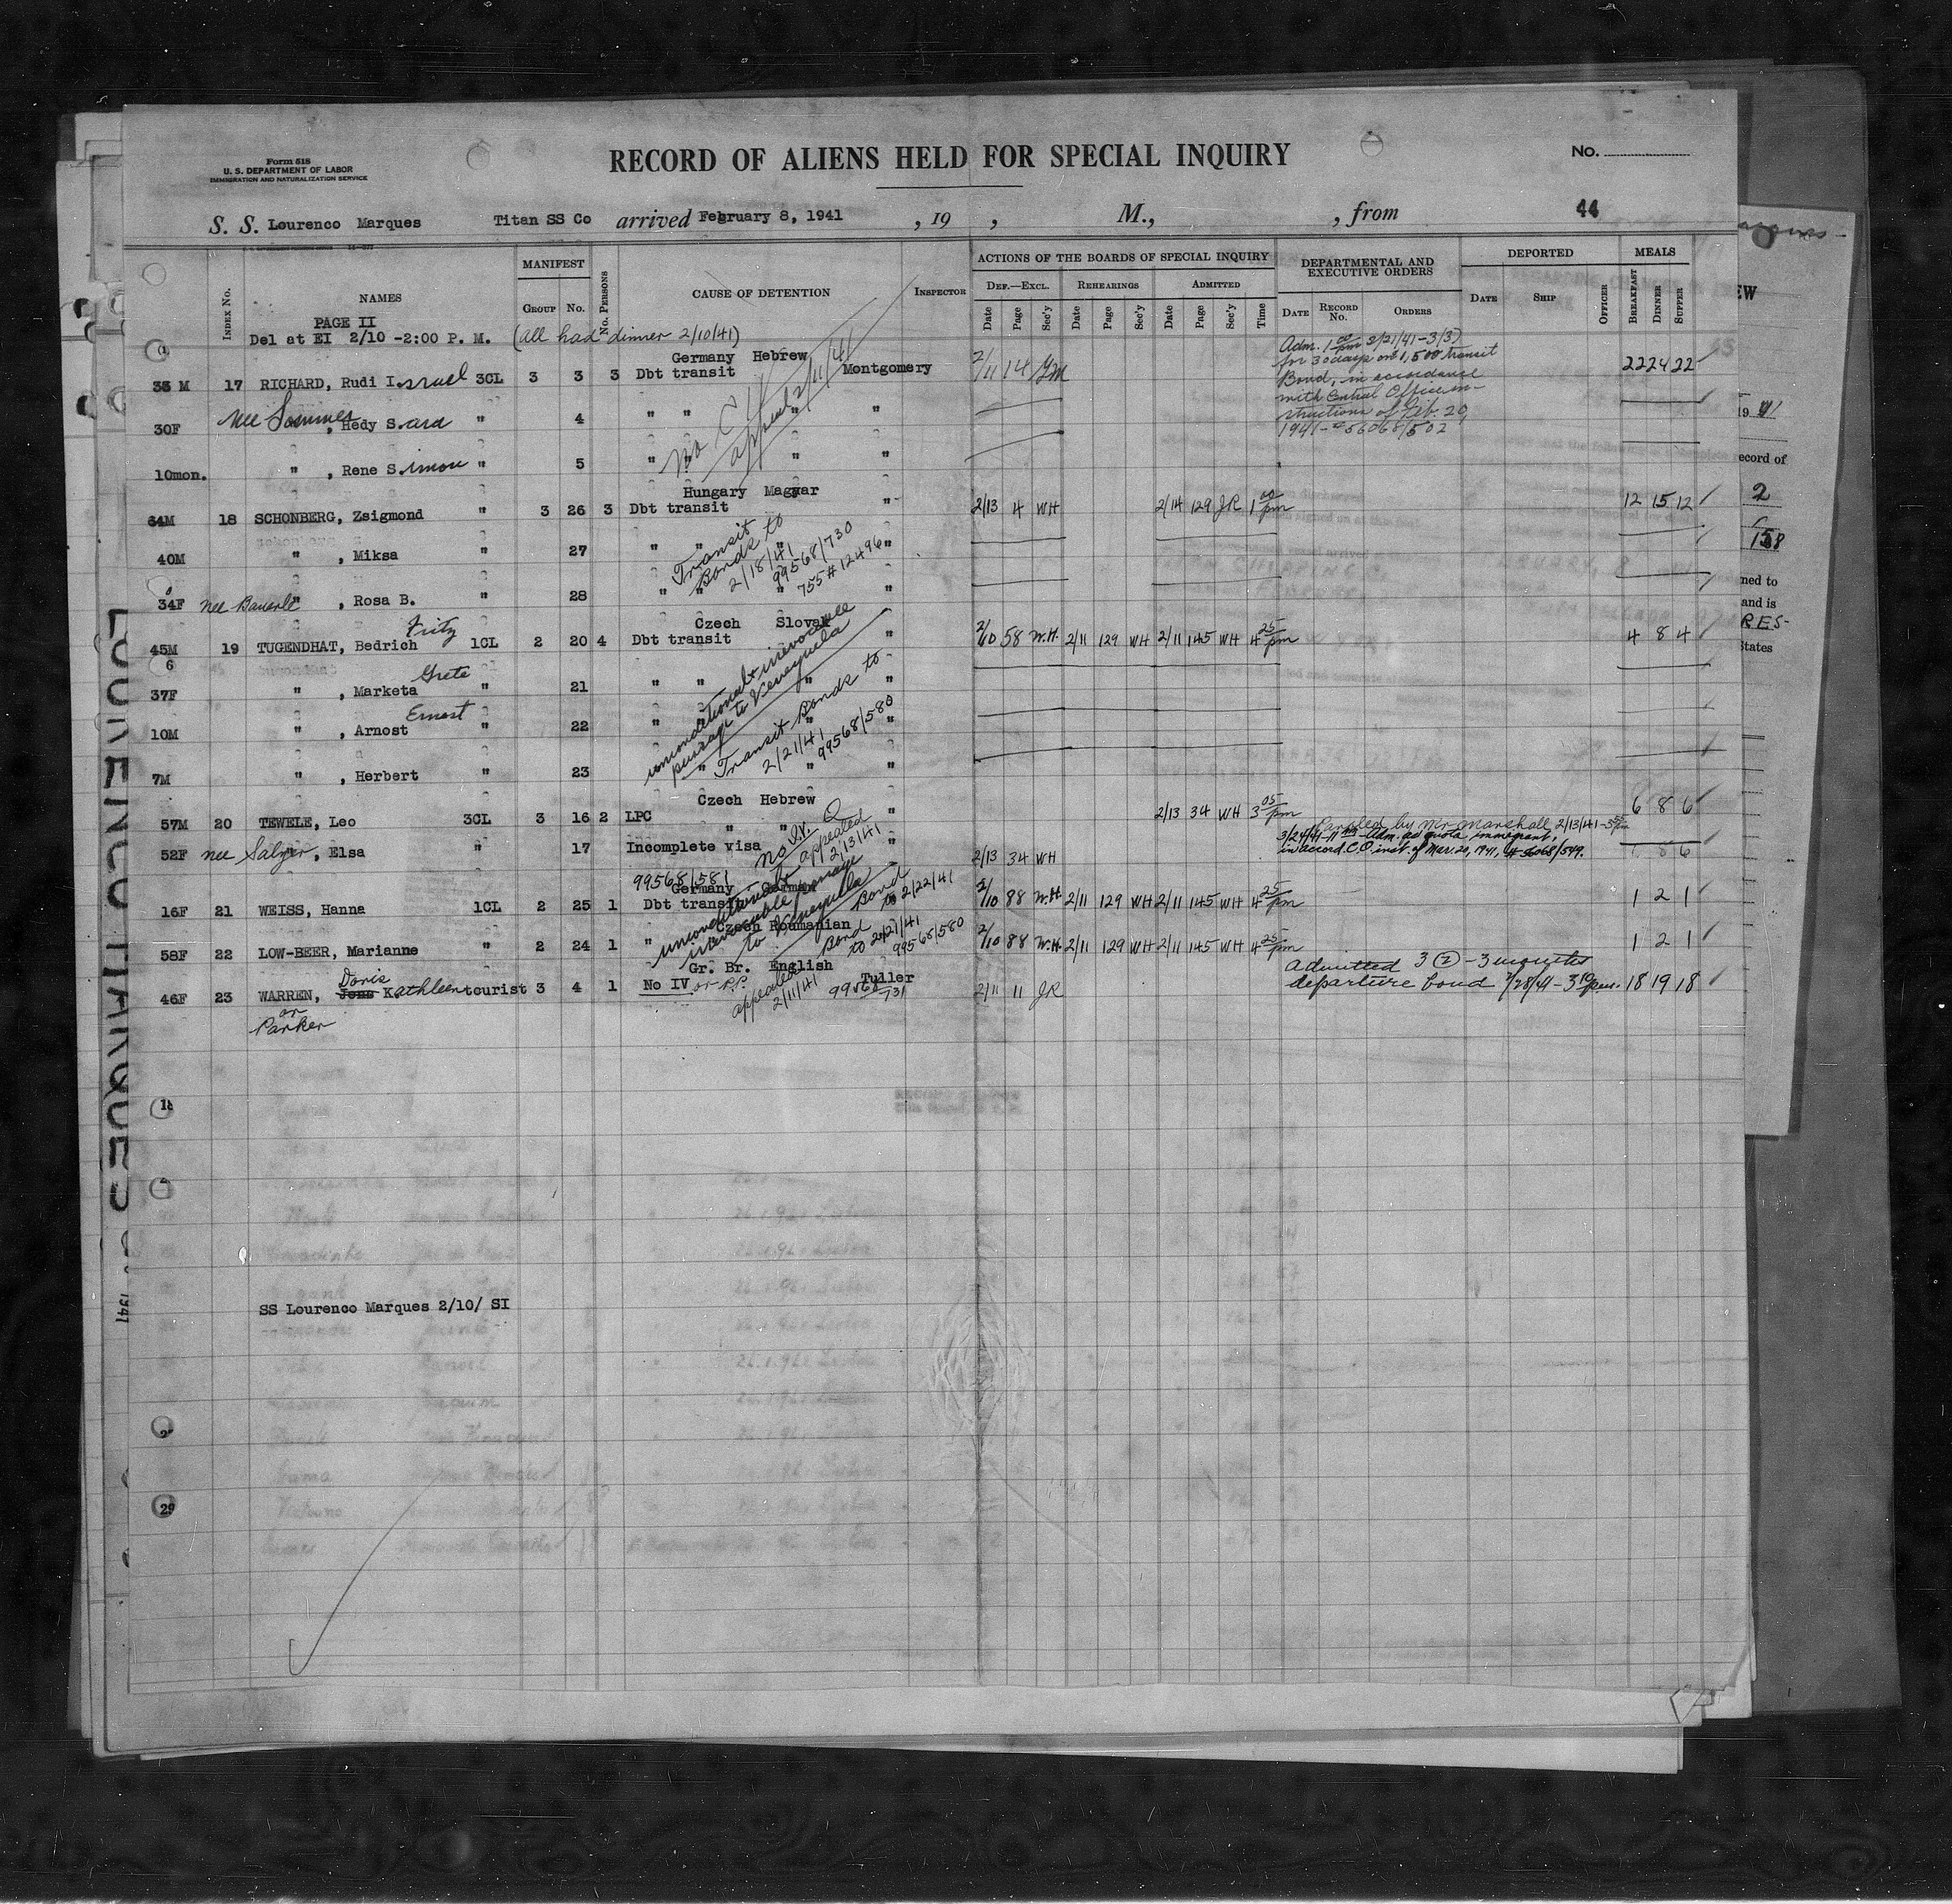 Form 518
U. S. DEPARTMENT OF LABOR
IMMIGRATION AND NATURALIZATION SERVICE
RECORD OF ALIENS HELD FOR SPECIAL INQUIRY
No.
S. S. Lourenco Marques Titan SS Co arrived February 8, 1941 , 19 , M., , from 44
Index No. NAMES MANIFEST Group No. No. Persons CAUSE OF DETENTION Inspector ACTIONS OF THE BOARDS OF SPECIAL INQUIRY DEPARTMENTAL AND EXECUTIVE ORDERS DEPORTED MEALS
Def.—Excl. Rehearings Admitted
Date Page Sec'y Date Page Sec'y Date Page Sec'y Time Date Record No. Orders Date Ship Officer Breakfast Dinner Supper
PAGE II
Del at EI 2/10 -2:00 P. M. (All had dinner 2/10/41)
Germany Hebrew
35 M 17 RICHARD, Rudi Israel 3CL 3 3 3 Dbt transit Montgomery 2/11 14 GM 22 24 22
Adm. 1 00 pm 2/21/41 - 3/3)
for 30 days on $1,500 transit
Bond, in accordance
with Central Office in-
structions of Feb. 20,
1941 - #56068/502
No CH
appeal 2/11/41
30F nee Sommer , Hedy Sard " 4 " " " "
10mon. " , Rene Simon " 5 " " " "
Hungary Magyar
64M 18 SCHONBERG, Zsigmond " 3 26 3 Dbt transit " 2/13 4 WH 2/14 129 JR 1 00 pm 12 15 12
40M " , Miksa " 27 " " " "
34F nee Bauerle " , Rosa B. " 28 " " " "
Transit
Bonds to
2/18/41
99568/730
755 # 12496
Czech Slovak
45M 19 TUGENDHAT, Bedrich Fritz 1CL 2 20 4 Dbt transit " 2/10 58 W.H. 2/11 129 WH 2/11 145 WH 4 25 pm 4 8 4
37F " , Marketa Grete " 21 " " " "
10M " , Arnost Ernest " 22 " " " "
7M " , Herbert " 23 " " "
unconditional & irrevocable
passage to Venezuela
Transit Bonds to
2/21/41
99568/580
Czech Hebrew
57M 20 TEWELE, Leo 3CL 3 16 2 LPC " 2/13 34 WH 3 05 pm 6 8 6
52F nee Salzer " , Elsa " 17 Incomplete visa " 2/13 34 WH 8 6
No Iv. Q
appealed
2/13/41
Paroled by Mr Marshall 2/13/41 - 3 55 pm
3/24/41 - 11 am - Adm. as quota immigrant,
in accord. C.O. inst. of Mar. 20, 1941, # 56068/549.
99568/581
Germany German
16F 21 WEISS, Hanna 1CL 2 25 1 Dbt transit 2/10 88 W.H 2/11 129 WH 2/11 145 WH 4 25 pm 1 2 1
unconditional &
irrevocable passage
to Venezuela
Bond
to 2/22/41
Czech Roumanian
58F 22 LOW-BEER, Marianne " 2 24 1 " 2/10 88 W.H 2/11 129 WH 2/11 145 WH 4 25 pm 1 2 1
Bond
to 2/21/41
99568/580
Gr. Br. English
46F 23 WARREN, Doris Kathleen tourist 3 4 1 No IV or P.P. Tuller 2/11 11 JR 18 19 18
or
Parker
appealed
2/11/41
Admitted 3 (2) - 3 months
departure bond 2/28/41 - 3 10 pm.
SS Lourenco Marques 2/10/ SI
29
LOURENCO MARQUES
1941
ecord of
2
158
ned to
and is
RES-
States